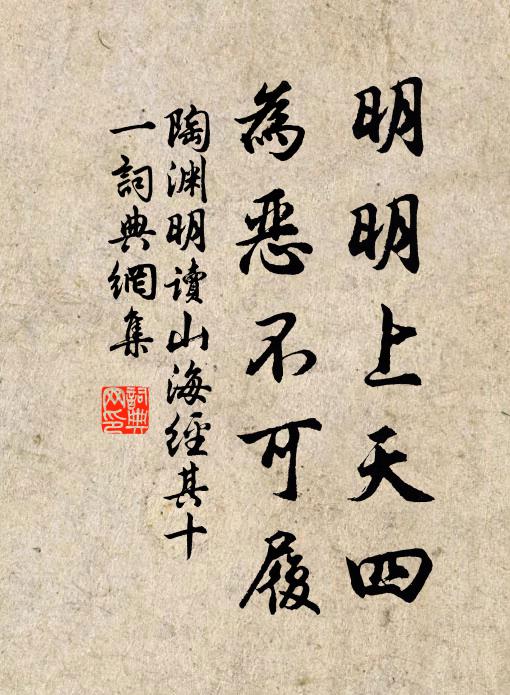 明明上天四
為惡不可履
陶淵明讀山海經其十
一詞典網集
詞典網印